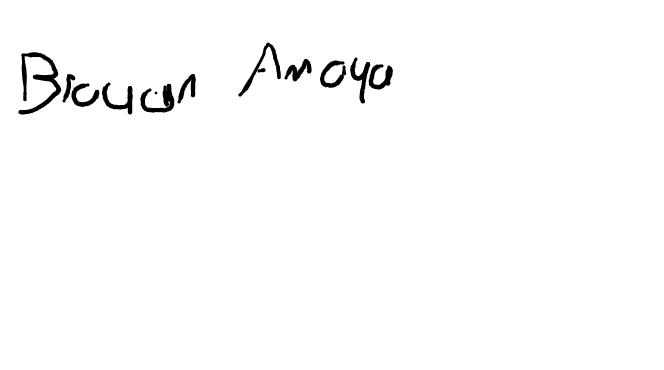 Brayan Amaya